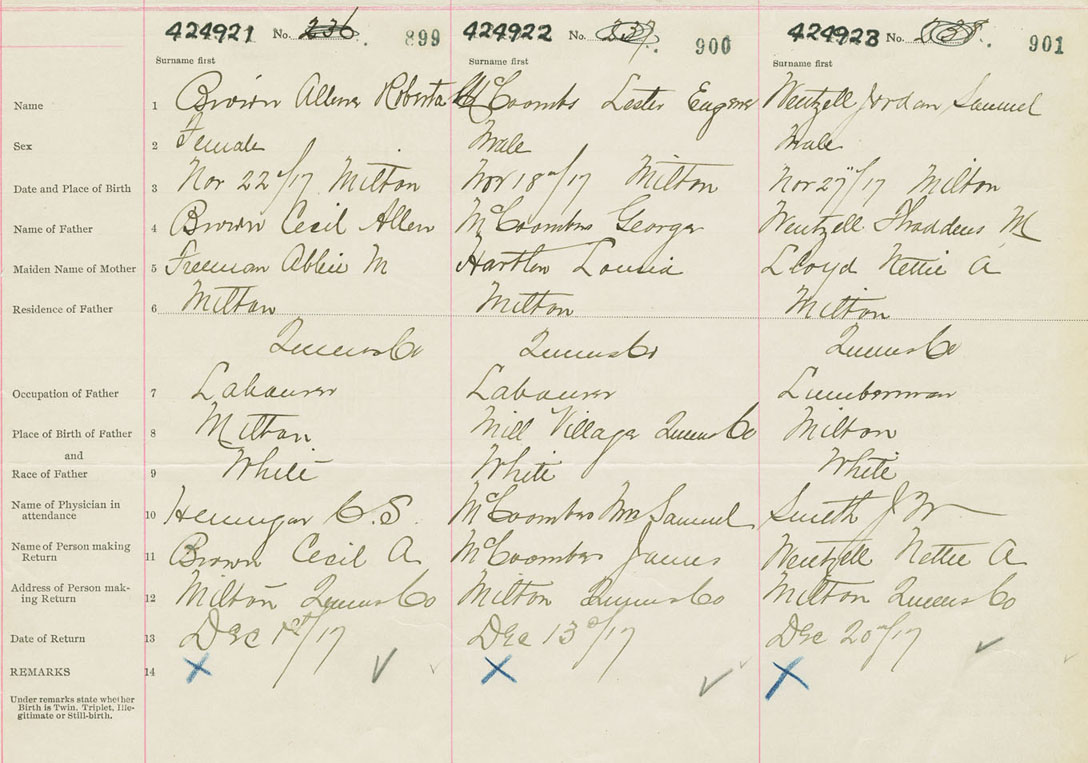 424921 No. 236. 899 424922 No. 237. 900 424923 No. 238. 901
Surname first Surname first Surname first
Name 1 Brown Allene Roberta McCoombs Lester Eugene Wentzell Jordan Samuel
Sex 2 Female Male Male
Date and Place of Birth 3 Nov 22nd/17 Milton Nov 18th/17 Milton Nov 27th/17 Milton
Name of Father 4 Brown Cecil Allen McCoombs George Wentzell Thaddeus M
Maiden Name of Mother 5 Freeman Abbie M Louisa Lloyd Nettie A
Residence of Father 6 Milton Milton Milton
Queens Co Queens Co Queens Co
Occupation of Father 7 Labourer Labourer Lumberman
Place of Birth of Father 8 Milton Mill Village Queens Co Milton
and
Race of Father 9 White White White
Name of Physician in
attendance 10 Hennigar C. S. McCoombs Mrs Samuel Smith J W
Name of Person making
Return 11 Brown Cecil A McCoombs James Wentzell Nettie A
Address of Person mak-
ing Return 12 Milton Queens Co Milton Queens Co Milton Queens Co
Date of Return 13 Dec 1st/17 Dec 13th/17 Dec 20th/17
REMARKS 14 X X X
Under remarks state whether
Birth is Twin, Triplet, Ille-
gitimate or Still-birth.